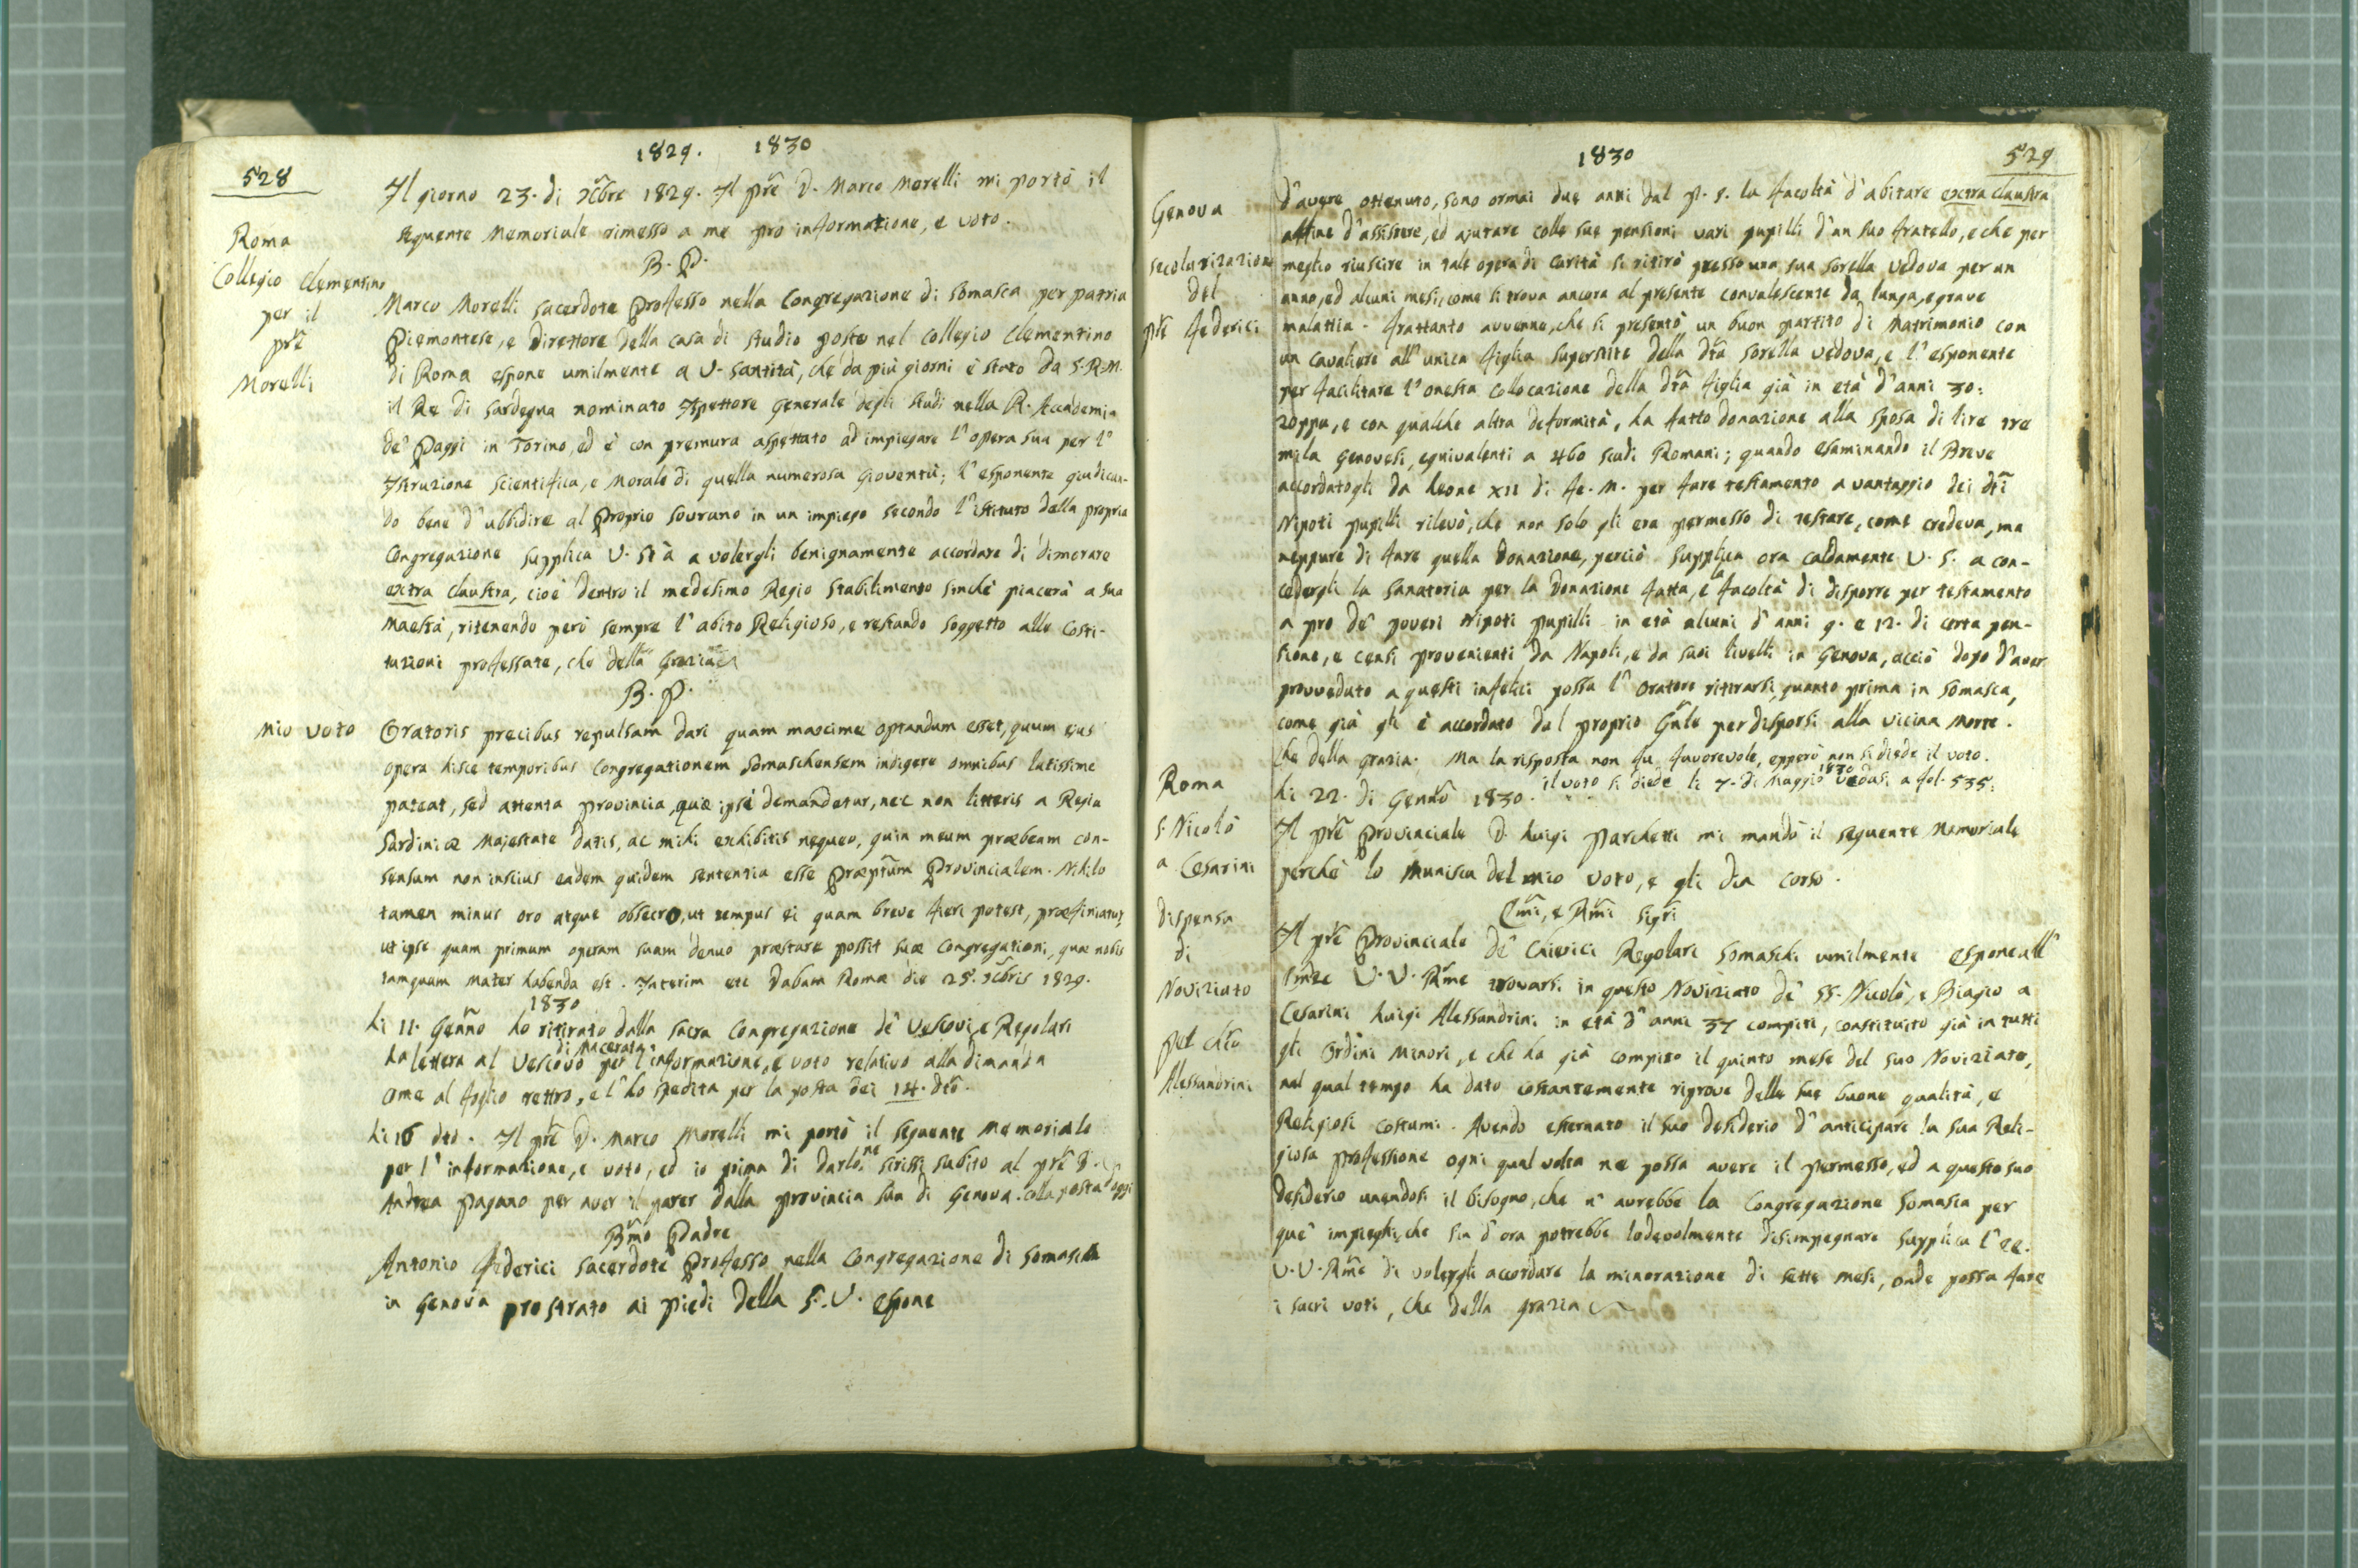 1829. 1830
528
Il giorno 23. di Xbre 1829. Il pre D. Marco Morelli mi portò il
seguente Memoriale rimesso a me pro informatione, e voto.
Roma
Collegio Clementino
per il
pre
Morelli
B. P.
Marco Morelli sacerdote Professo nella Congregazione di Somasca per patria
Piemontese, e Direttore della casa di studio posto nel Collegio Clementino
di Roma espone umilmente a V. Santità, che da più giorni è stato da S.R.M.
il Re di Sardegna nominato Ispettore Generale degli studi nella R. Accademia
de' Paggi in Torino, ed è con premura aspettato ad impiegare l'opera sua per l'
Istruzione scientifica, e Morale di quella numerosa Gioventù; l'esponente giudican-
do bene d'ubbidire al Proprio Sovrano in un impiego secondo l'istituto della propria
Congregazione supplica V. Stà a volergli benignamente accordare di dimorare
extra claustra, cioè dentro il medesimo Regio Stabilimento sinchè piacerà a sua
Maestà, ritenendo però sempre l'abito Religioso, e restando soggetto alle Costi-
tuzioni professate, che della Grazia
B. P.
Mio voto
Oratoris precibus repulsam dari quam maxime optandum esset, quum ejus
opera hisce temporibus Congregationem Somaschensem indigere omnibus latissime
pateat, sed attenta provincia, quæ ipsi demandetur, nec non litteris a Regia
Sardiniæ Majestate datis, ac mihi exhibitis nequeo, quin meum præbeam con-
sensum non inscius eadem quidem sententia esse Præptum Provincialem. Nihilo
tamen minus oro atque obsecro, ut tempus ei quam breve fieri potest, præfiniatur,
ut ipse quam primum operam suam denuo præstare possit suæ Congregationi, quæ nobis
tamquam mater habenda est. Interim etc Dabam Romæ die 25. Xbris 1829.
1830
Li 11. Genno ho ritirato dalla sacra Congregazione de' Vescovi, e Regolari
la lettera al Vescovo di Macerata per l'informazione, e voto relativo alla dimanda
ome al foglio rettro, e l'ho spedita per la posta dei 14. dto.
Li 16 dto. Il pre D. Marco Morelli mi portò il seguente memoriale
per l'informazione, e voto, ed io prima di darlo, ne scrissi subito al pre D.
Andrea Pagano per aver il parer dalla provincia sua di Genova. colla posta d'oggi
Bmo Padre
Antonio Federici sacerdote Professo nella Congregazione di Somasca
in Genova prostrato ai piedi della S. V. espone
1830
529
Genova
secolarizazione
del
pre Federici
d'avere ottenuto, sono ormai due anni dal P. G. la facoltà d'abitare extra claustra
affine d'assistere, ed ajutare colle sue pensioni vari pupilli d'un suo fratello, e che per
meglio riuscire in tale opera di carità si ritirò presso una sua sorella vedova per un
anno, ed alcuni mesi, come si trova ancora al presente convalescente da lunga, e grave
malattia. Frattanto avvenne, che si presentò un buon partito di Matrimonio con
un cavaliere all'unica figlia superstite della dta sorella vedova, e l'esponente
per facilitare l'onesta collocazione della dta figlia già in età d'anni 30:
zoppa, e con qualche altra deformità, ha fatto donazione alla sposa di lire tre
mila Genovesi, equivalenti a 460 scudi Romani; quando esaminando il Breve
accordatogli da Leone XII di fe. M. per fare testamento a vantaggio dei dti
Nipoti pupilli rilevò, che non solo gli era permesso di testare, come credeva, ma
neppure di fare quella Donazione, perciò supplica ora caldamente V. S. a con-
cedergli la sanatoria per la Donazione fatta, e la facoltà di disporre per testamento
a pro de' poveri Nipoti pupilli in età alcuni d'anni 9. e 12. di certa pen-
sione, e censi provenienti da Napoli, e da suoi livelli in Genova, acciò dopo d'aver
provveduto a questi infelici possa l'Oratore ritirarsi, quanto prima in Somasca,
come già gli è accordato dal proprio Gnle per disporsi alla vicina Morte.
Che della grazia. Ma la risposta non fu favorevole, epperò non si diede il voto.
il voto si diede li 7. di Maggio 1830 vedasi a fol. 535:
Roma
S. Nicolò
a Cesarini
Dispensa
di
Noviziato
pel chco
Alessandrini
Li 22. di Genno 1830.
Il pre Provinciale D. Luigi Parchetti mi mandò il seguente Memoriale
perchè lo munisca del mio voto, e gli dia corso.
Emi, e Rmi Sigri
Il pre Provinciale de' Chierici Regolari Somaschi umilmente espone all'
Emze V. V. Rme trovarsi in questo Noviziato de' SS. Nicolò, e Biagio a
Cesarini Luigi Alessandrini in età d'anni 37 compiti, constituito già in tutti
gli Ordini Minori, e che ha già compito il quinto mese del suo Noviziato,
nel qual tempo ha dato costantemente riprove delle sue buone qualità, e
Religiosi costumi. Avendo esternato il suo desiderio d'anticipare la sua Reli-
giosa professione ogni qual volta ne possa avere il permesso, ed a questo suo
desiderio unendosi il bisogno, che n'avrebbe la Congregazione Somasca per
que' impieghi, che sin d'ora potrebbe lodevolmente disimpegnare supplica l'EE.
V. V. Rme di volergli accordare la minorazione di sette mesi, onde possa fare
i sacri voti, che della grazia